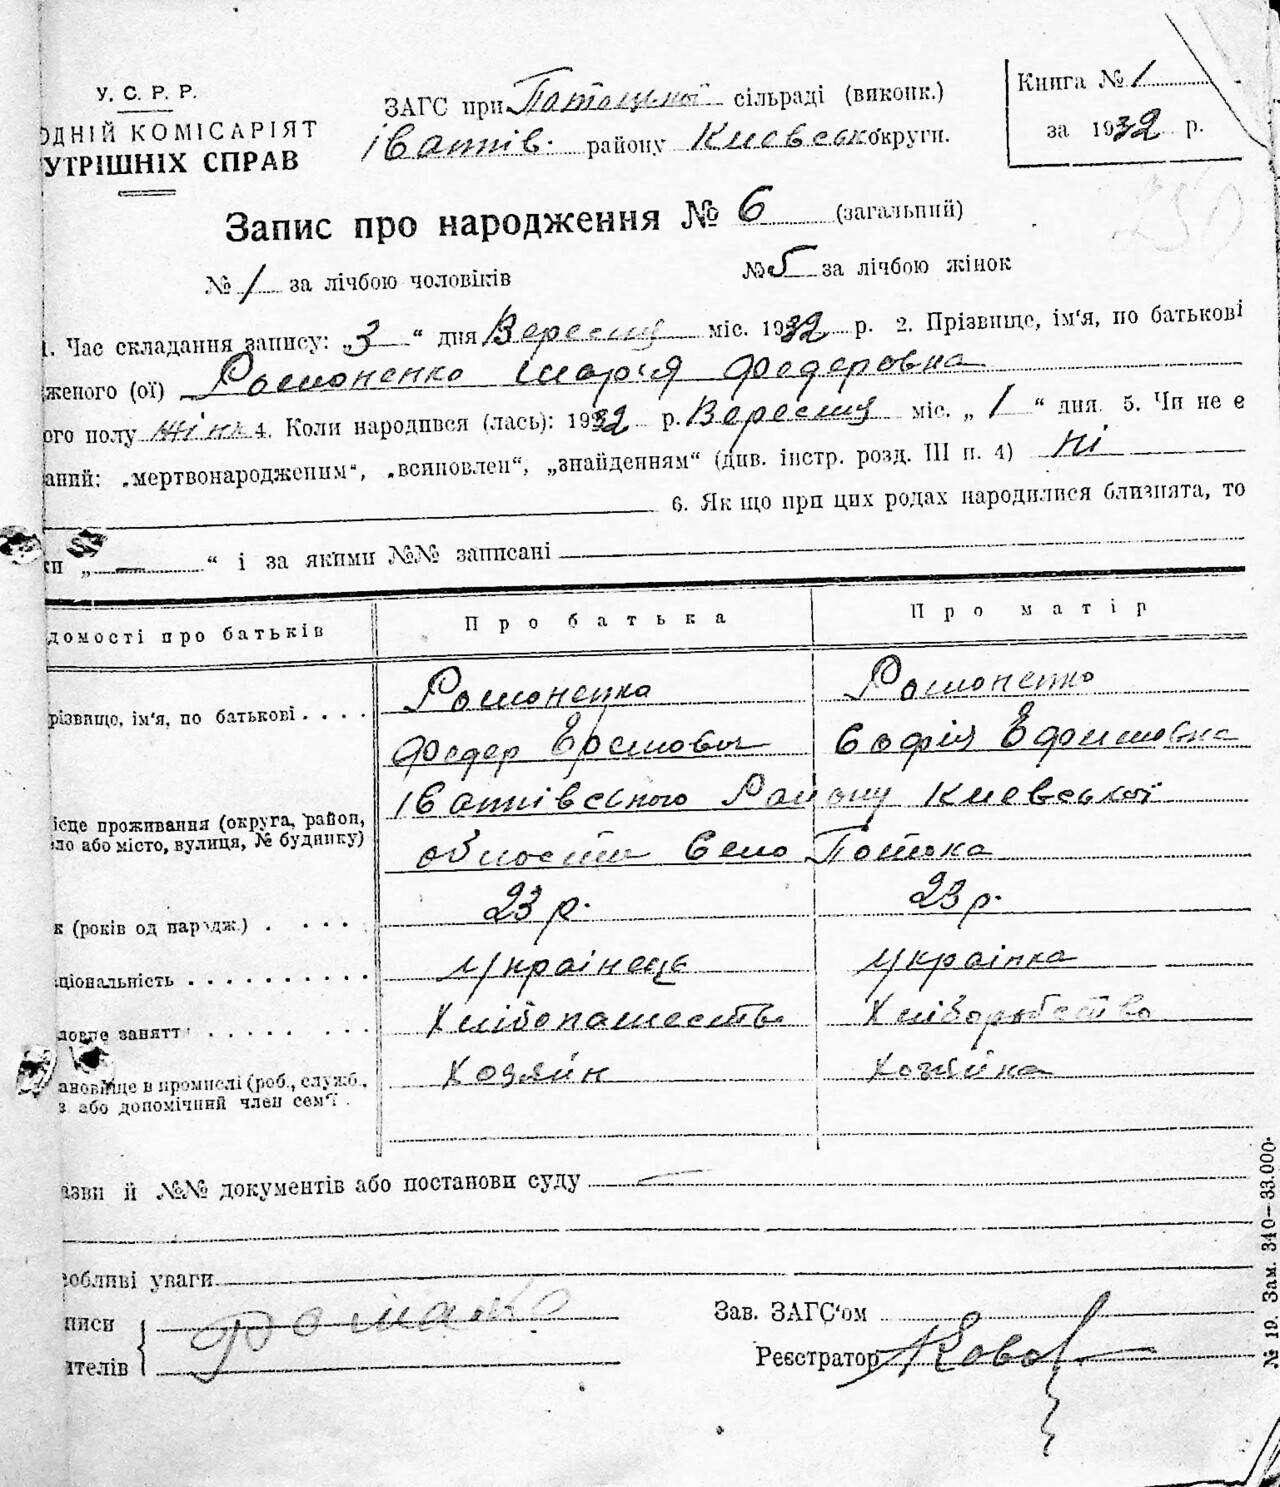 У. С. Р. Р.
ОДНІЙ КОМІСАРІЯТ
УТРІШНІХ СПРАВ
ЗАГС при Потоцької сільраді (виконк.)
Іванків. району Киевськ округи.
Книга № 1
за 1932 р.
Запис про народження № 6 (загальний)
№ 1 за лічбою чоловіків № 5 за лічбою жінок
1. Час складання запису: „3“ дня Вересня міс. 1932 р. 2. Прізвище, ім'я, по батькові
женого (ої) Романенко Марія Федеровна
ого полу жінк 4. Коли народився (лась): 1932 р. Вересня міс. „1“ дня. 5. Чи не є
аний: „мертвонародженим“, „всиновлен“, „знайденням“ (див. інстр. розд. III п. 4) ні
6. Як що при цих родах народилися близнята, то
ки „—“ і за якими №№ записані
домості про батьків Про батька Про матір
різвище, ім'я, по батькові . . . . Романенко Романенко
Федер Софія Ефимовна
ісце проживання (округа, район, ло або місто, вулиця, № будинку)
Району Киевської
області Село Потока
к (років од народж.) . . . . . 23 р. 23 р.
ціональність . . . . . . . . . . Українець Українка
ловне заняття . . . . . . . Хліборобство
ановище в промислі (роб., служб., Хозяїн Хозяйка
з або допомічний член сем'ї .
азви й №№ документів або постанови суду —
собливі уваги
писи
ителів
Зав. ЗАГС'ом
Реєстратор
№ 19. Зам. 340—33.000.